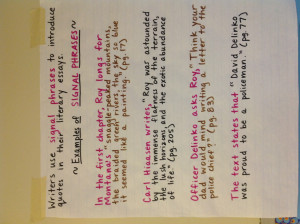 Writers use signal phrases to introduce
quotes in their literary essays.
~ Examples of SIGNAL PHRASES ~
In the first chapter, Roy longs for
Montana's "snaggle-peaked mountains,
the braided green rivers, the sky so blue
it seemed like a painting." (pg. 17)
Carl Hiaasen writes, "Roy was astounded
by the immense flatness of the terrain,
the lush horizons, and the exotic abundance
of life." (pg 205)
Officer Delinko asks Roy, "Think your
dad would mind writing a letter to the
police chief?" (pg. 83)
The text states that "David Delinko
was proud to be a policeman." (pg. 77)